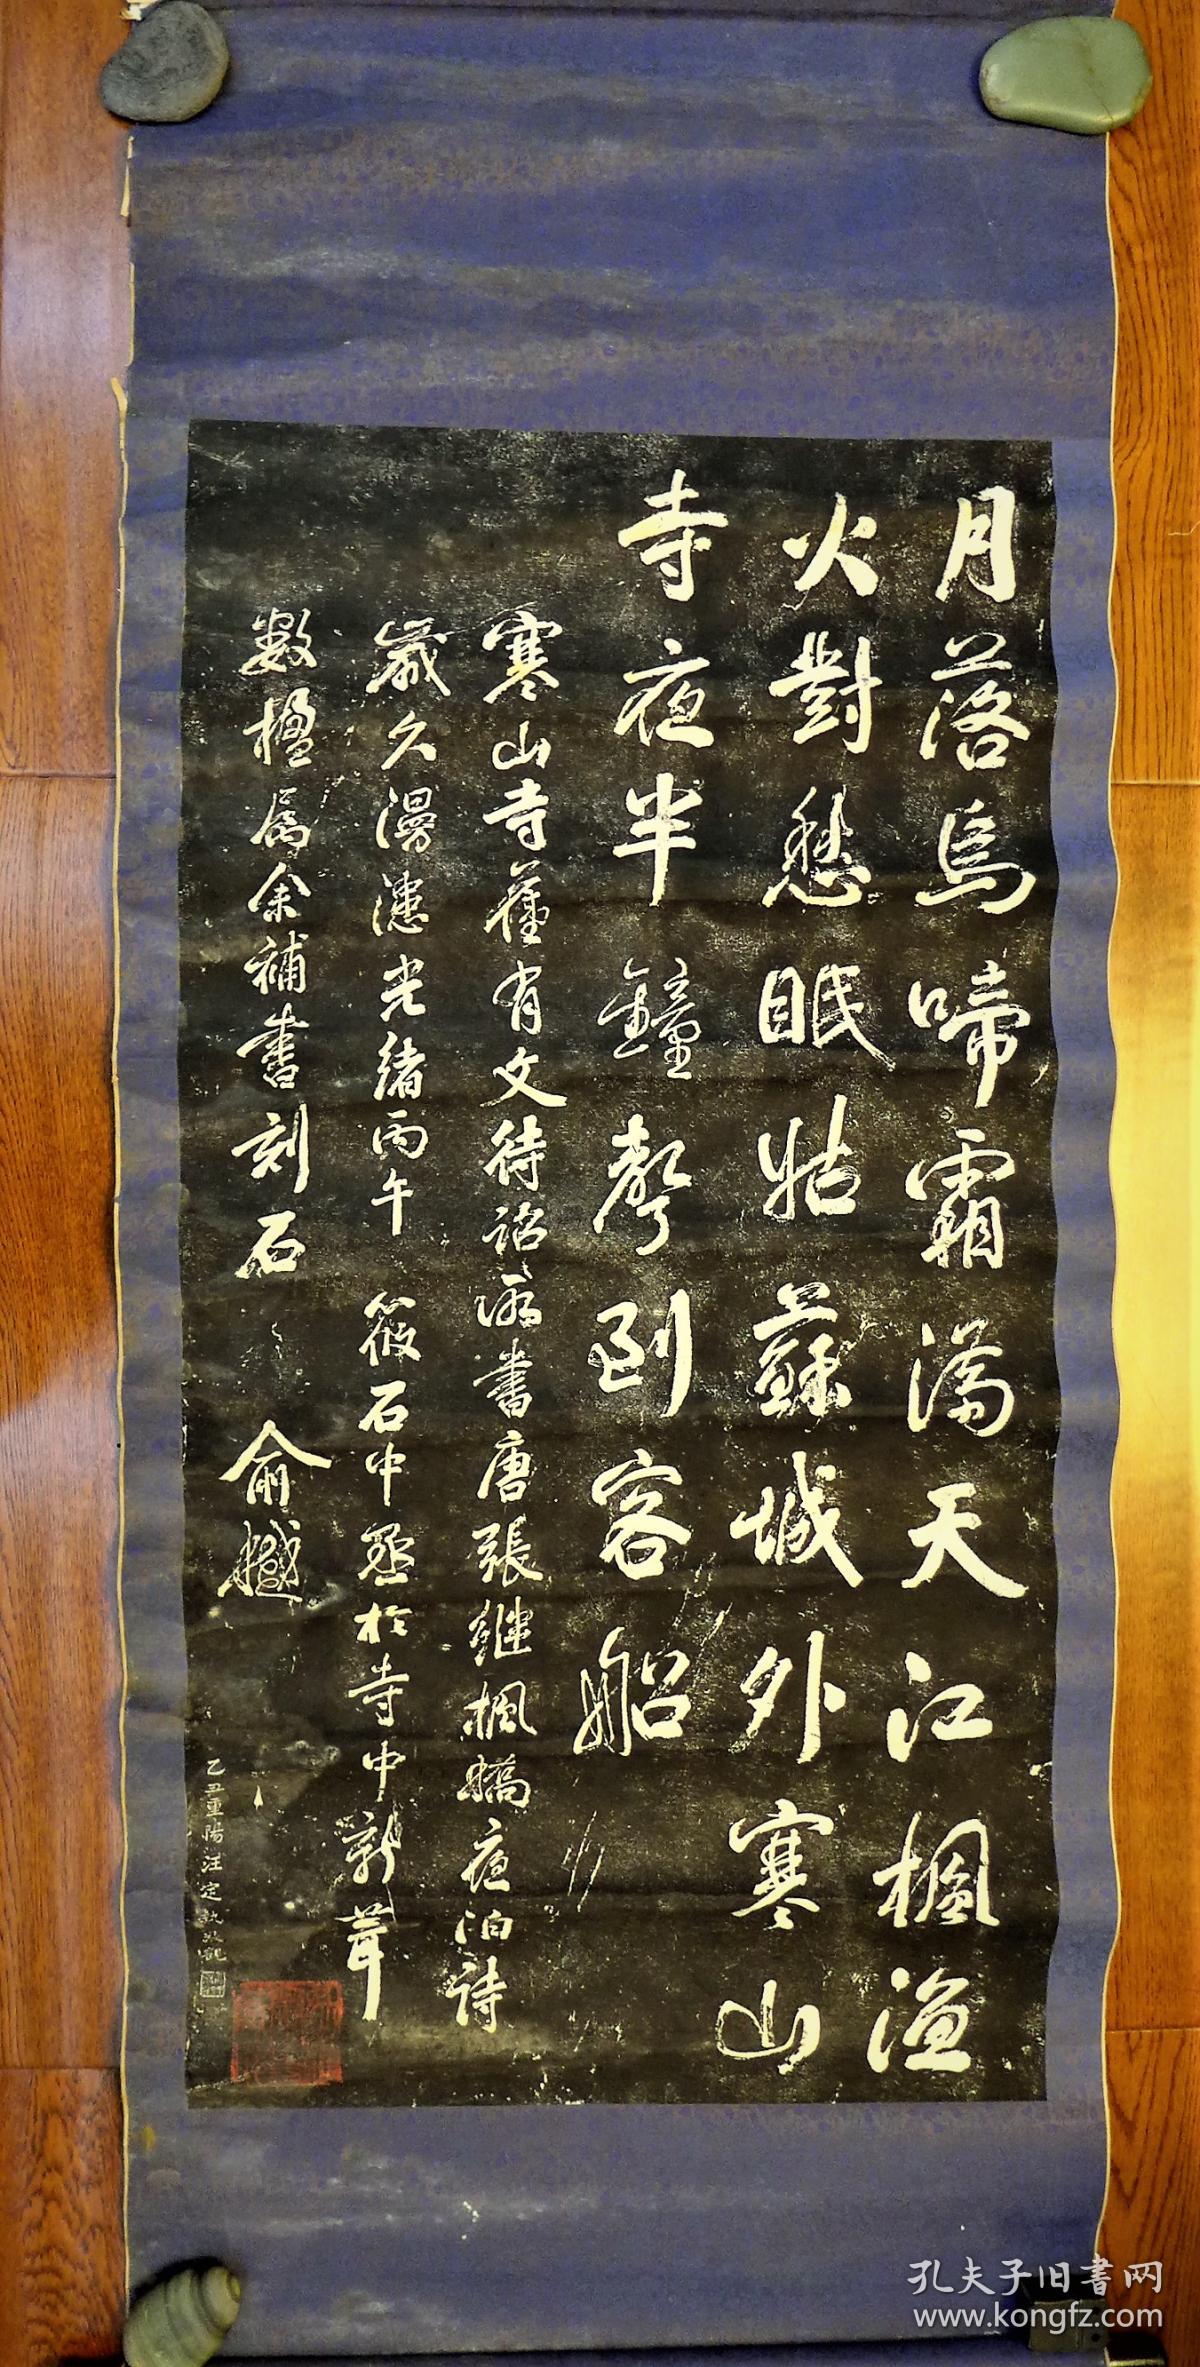 月落烏啼霜滿天江楓漁
火對愁眠姑蘇城外寒山
寺夜半鐘聲到客船
寒山寺舊有文待詔所書唐張繼楓橋夜泊詩
歲久漫漶光緒丙午 筱石中丞於寺中新葺
數楹屬余補書刻石 俞樾
乙丑重陽汪定
孔夫子旧书网
www.kongfz.com